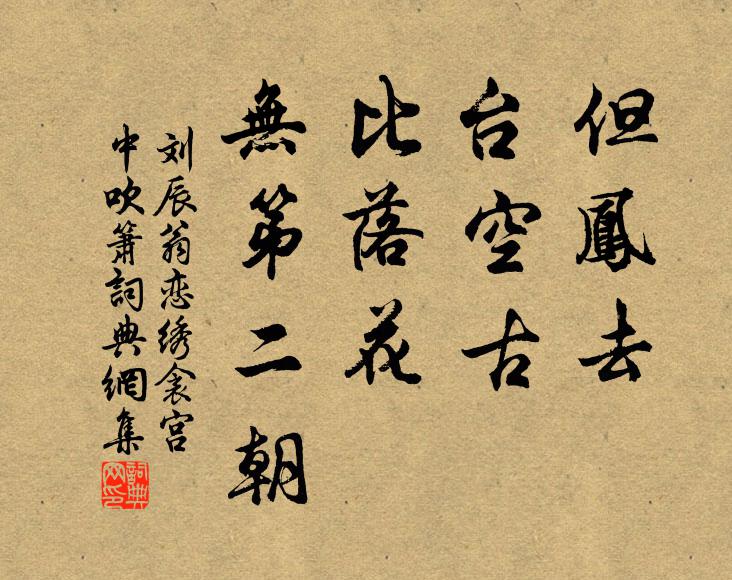 但鳳去
台空古
比落花
無第二朝
刘辰翁恋绣衾宫
中吹簫詞典網集
詞典
网印